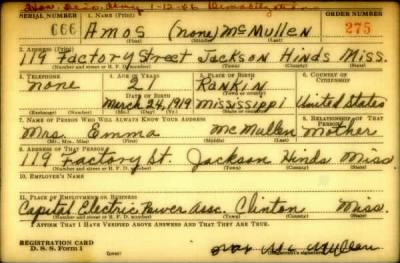 SERIAL NUMBER 1. NAME (Print) ORDER NUMBER
666 Amos (none) McMullen 275
(First) (Middle) (Last)
2. ADDRESS (Print)
119 Factory Street Jackson Hinds Miss.
(Number and street or R. F. D. number) (Town) (County) (State)
3. TELEPHONE 4. AGE IN YEARS 5. PLACE OF BIRTH 6. COUNTRY OF CITIZENSHIP
none 2 Rankin
DATE OF BIRTH (Town or county)
March 24, 1919 Mississippi United States
(Exchange) (Number) (Mo.) (Day) (Yr.) (State or country)
7. NAME OF PERSON WHO WILL ALWAYS KNOW YOUR ADDRESS 8. RELATIONSHIP OF THAT PERSON
Mrs. Emma McMullen Mother
(Mr., Mrs., Miss) (First) (Middle) (Last)
9. ADDRESS OF THAT PERSON
119 Factory St. Jackson Hinds Miss
(Number and street or R. F. D. number) (Town) (County) (State)
10. EMPLOYER'S NAME
11. PLACE OF EMPLOYMENT OR BUSINESS
Capitol Electric Power Assc. Clinton Miss.
(Number and street or R. F. D. number) (Town) (County) (State)
I AFFIRM THAT I HAVE VERIFIED ABOVE ANSWERS AND THAT THEY ARE TRUE.
REGISTRATION CARD
D. S. S. Form 1
Mc Mullen
(Registrant's signature)